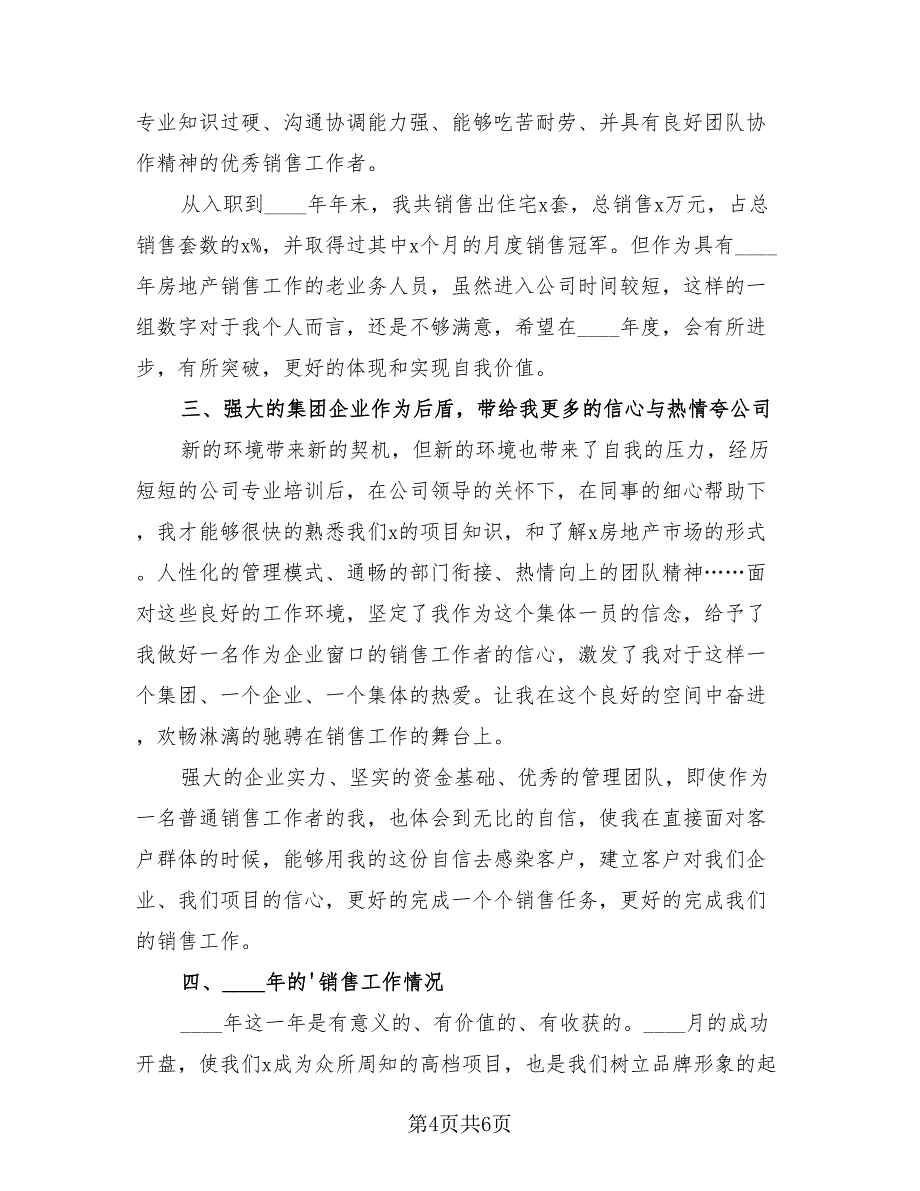 专业知识过硬、沟通协调能力强、能够吃苦耐劳、并具有良好团队协
作精神的优秀销售工作者。
从入职到____年年末，我共销售出住宅x套，总销售x万元，占总
销售套数的x%，并取得过其中x个月的月度销售冠军。但作为具有____
年房地产销售工作的老业务人员，虽然进入公司时间较短，这样的一
组数字对于我个人而言，还是不够满意，希望在____年度，会有所进
步，有所突破，更好的体现和实现自我价值。
三、强大的集团企业作为后盾，带给我更多的信心与热情夸公司
新的环境带来新的契机，但新的环境也带来了自我的压力，经历
短短的公司专业培训后，在公司领导的关怀下，在同事的细心帮助下
，我才能够很快的熟悉我们x的项目知识，和了解x房地产市场的形式
。人性化的管理模式、通畅的部门衔接、热情向上的团队精神……面
对这些良好的工作环境，坚定了我作为这个集体一员的信念，给予了
我做好一名作为企业窗口的销售工作者的信心，激发了我对于这样一
个集团、一个企业、一个集体的热爱。让我在这个良好的空间中奋进
，欢畅淋漓的驰骋在销售工作的舞台上。
强大的企业实力、坚实的资金基础、优秀的管理团队，即使作为
一名普通销售工作者的我，也体会到无比的自信，使我在直接面对客
户群体的时候，能够用我的这份自信去感染客户，建立客户对我们企
业、我们项目的信心，更好的完成一个个销售任务，更好的完成我们
的销售工作。
四、____年的'销售工作情况
____年这一年是有意义的、有价值的、有收获的。____月的成功
开盘，使我们x成为众所周知的高档项目，也是我们树立品牌形象的起
第4页共6页